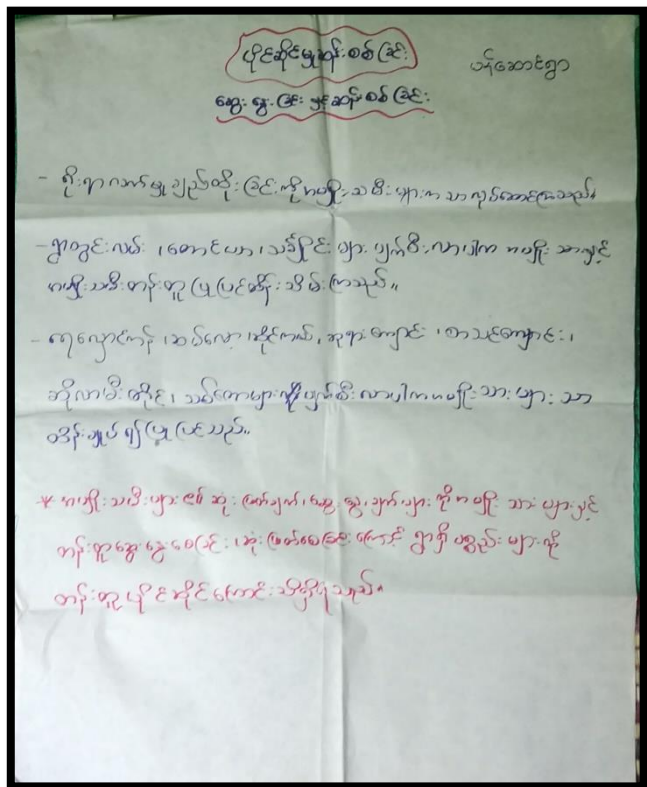 ပိုင်ဆိုင်မှုဆန်းစစ်ခြင်း
ပန်ဆောင်ရွာ
ဆွေးနွေးခြင်းနှင့်ဆန်းစစ်ခြင်း
- ရိုးရာယက်မှုချည်ထိုးခြင်းကိုအမျိုးသမီးများကသာလုပ်ဆောင်ကြသည်။
- ရွာတွင်းလမ်း၊တောင်ယာ၊သင်္ချိုင်းများပျက်စီးလာပါကအမျိုးသားနှင့်
အမျိုးသမီးတန်းတူပြုပြင်ထိန်းသိမ်းကြသည်။
- ရေလှောင်ကန်၊ ၊ဆိုင်ကယ်၊ဘုရားကျောင်း၊စာသင်ကျောင်း၊
ဆိုလာမီးတိုင်၊သစ်တောများကိုပျက်စီးလာပါကအမျိုးသားများသာ
ထိန်းချုပ်၍ပြုပြင်သည်။
* အမျိုးသမီးများ၏ဆုံးဖြတ်ချက်၊ဆွေးနွေးချက်များကိုအမျိုးသားများနှင့်
တန်းတူဆွေးနွေးစေခြင်း၊ဆုံးဖြတ်စေခြင်းကြောင့်ရွာရှိပစ္စည်းများကို
တန်းတူပိုင်ဆိုင်ကြောင်းသိရှိရသည်။